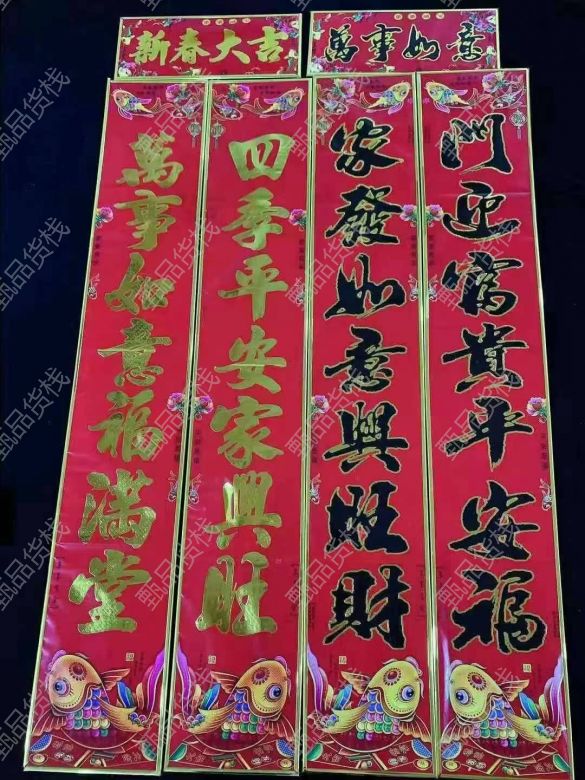 新春大吉
萬事如意
門迎富貴平安福
家發如意興旺財
四季平安家興旺
萬事如意福滿堂
甄品货栈